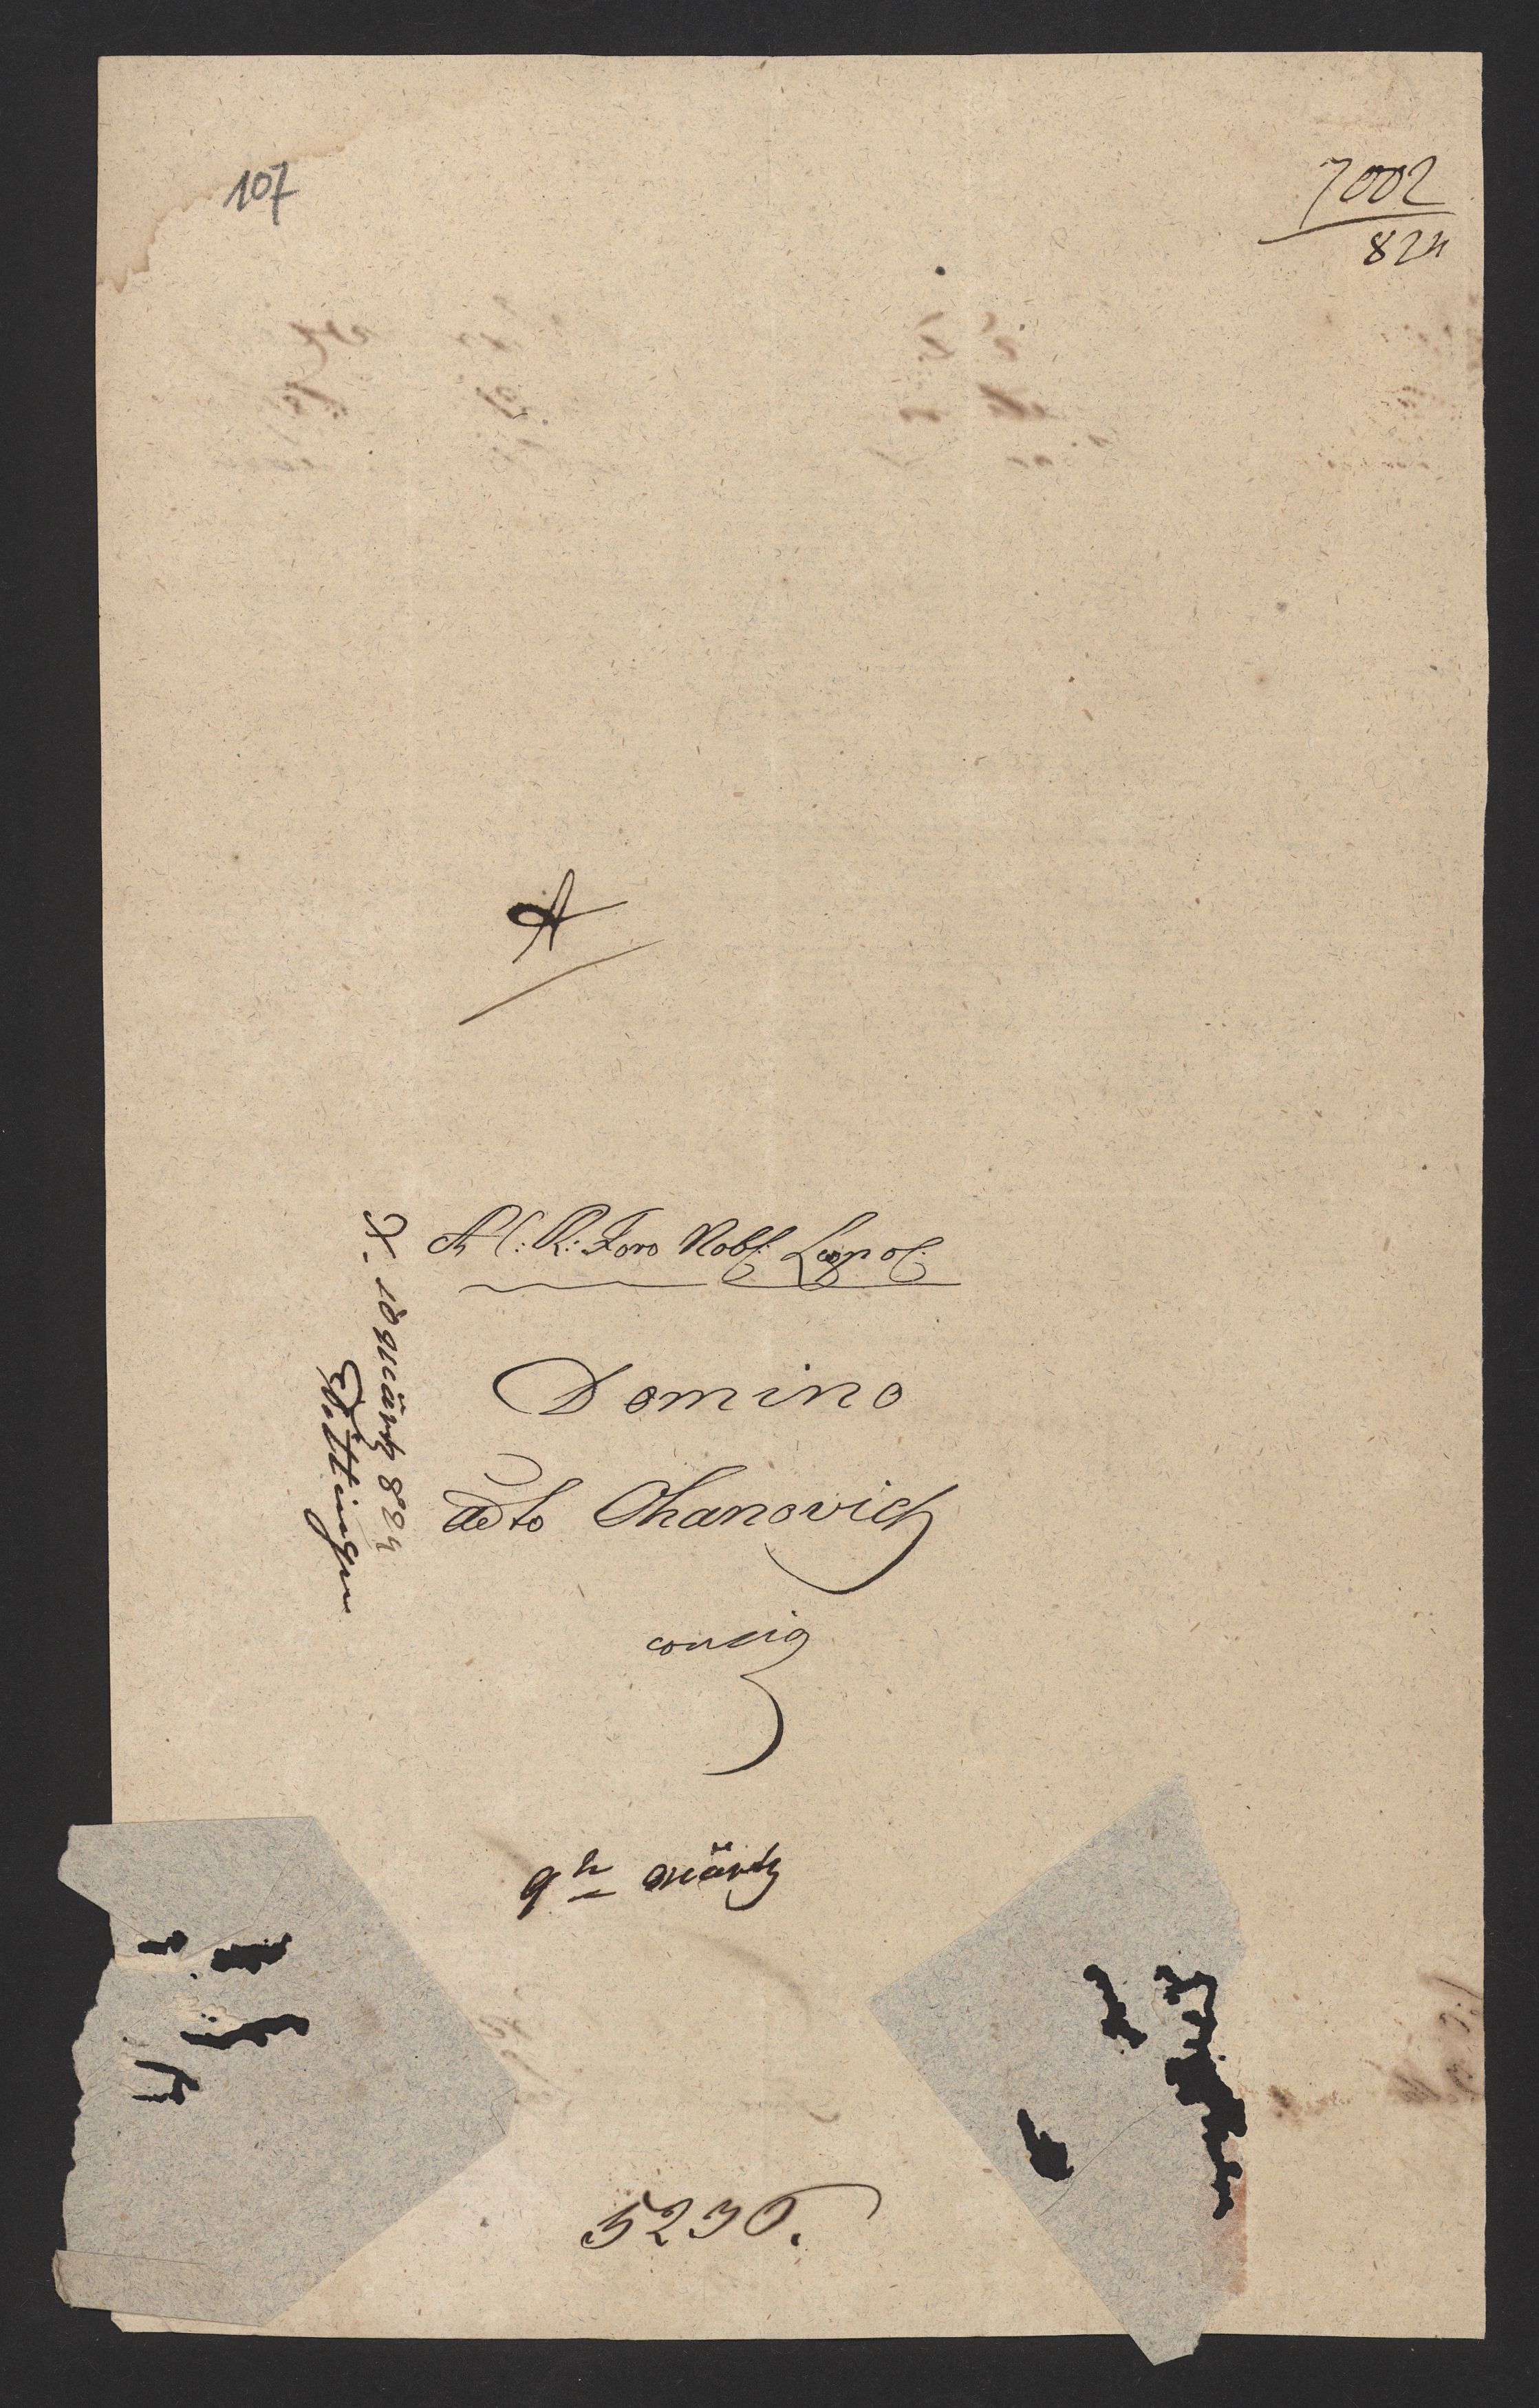 107
7002
824
A
A C: R: Foro Nobl: Leopol:
Domino
Adto Ohanovich
consig
9h März
X. 10 März 824
Döttinger
5236.